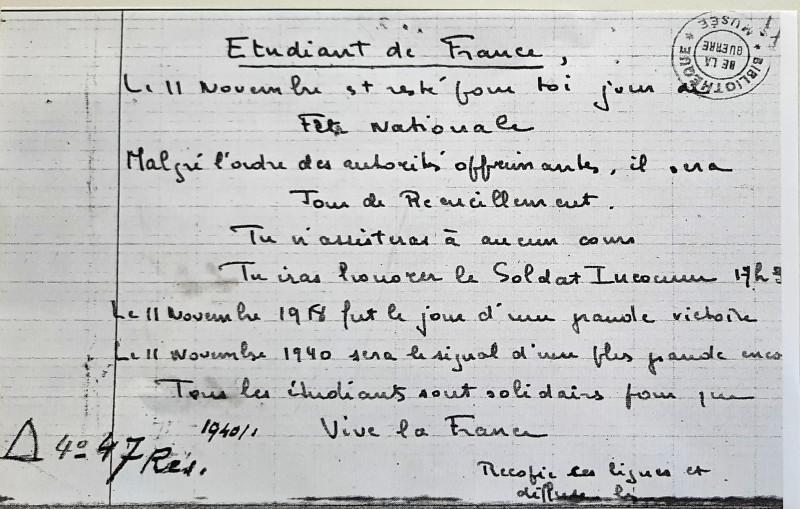 Etudiant de France,
Le 11 Novembre est resté pour toi jour de
Fête Nationale
Malgré l'ordre des autorités opprimantes, il sera
Jour de Recueillement.
Tu n'assisteras à aucun cours
Tu iras honorer le Soldat Inconnu 17h 3
Le 11 Novembre 1918 fut le jour d'une grande victoire
Le 11 Novembre 1940 sera le signal d'une plus grande enco
Tous les étudiants sont solidaires pour que
Vive la France
1940/1
Δ 4º 47 Rés.
Recopie ces lignes et
diffuse les
BIBLIOTHEQUE * ET MUSÉE *
DE LA
GUERRE